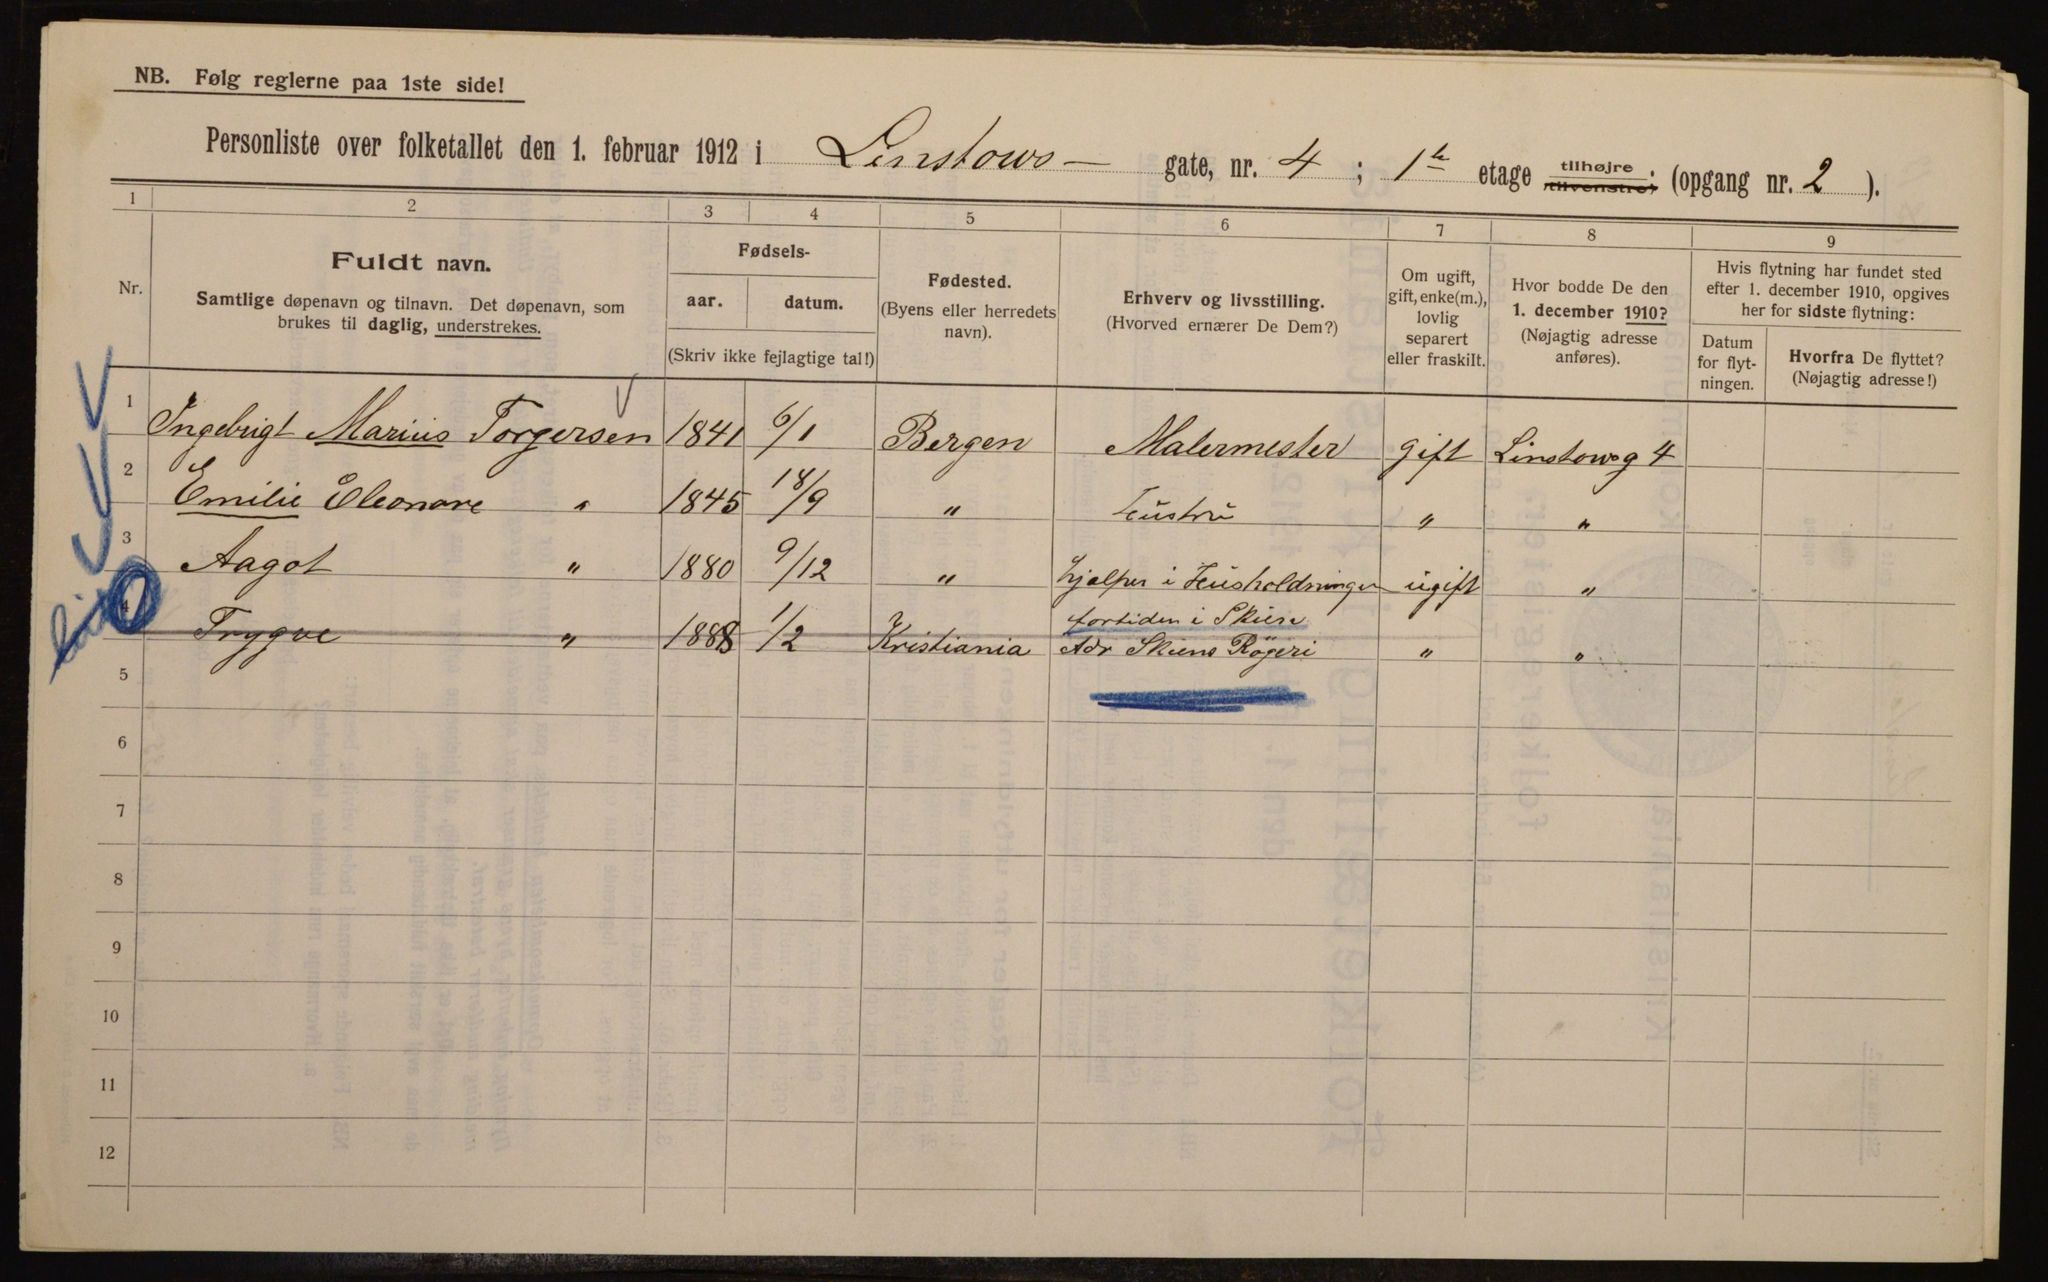 NB. Følg reglerne paa 1ste side!
Personliste over folketallet den 1. februar 1912 i Linstows- gate, nr. 4 ; 1ste etage tilhøjre. tilvenstre, (opgang nr. 2 ).
1 2 3 4 5 6 7 8 9
Nr.
Fuldt navn.
Samtlige døpenavn og tilnavn. Det døpenavn, som
brukes til daglig, understrekes.
Fødsels-
aar. datum.
(Skriv ikke fejlagtige tal!)
Fødested.
(Byens eller herredets
navn).
Erhverv og livsstilling.
(Hvorved ernærer De Dem?)
Om ugift,
gift, enke(m.),
lovlig
separert
eller fraskilt.
Hvor bodde De den
1. december 1910?
(Nøjagtig adresse
anføres).
Hvis flytning har fundet sted
efter 1. december 1910, opgives
her for sidste flytning:
Datum
for flyt-
ningen.
Hvorfra De flyttet?
(Nøjagtig adresse!)
1 Ingebrigt Marius Torgersen 1841 6/1 Bergen Malermester gift Linstowsg 4
2 Emilie Eleonore " 1845 18/9 " Hustru " "
3 Aagot " 1880 9/12 " hjælper i Husholdningen ugift "
4 Trygve " 1888 1/2 Kristiania fortiden i Skien
Adr Skiens Rögeri " "
5
6
7
8
9
10
11
12